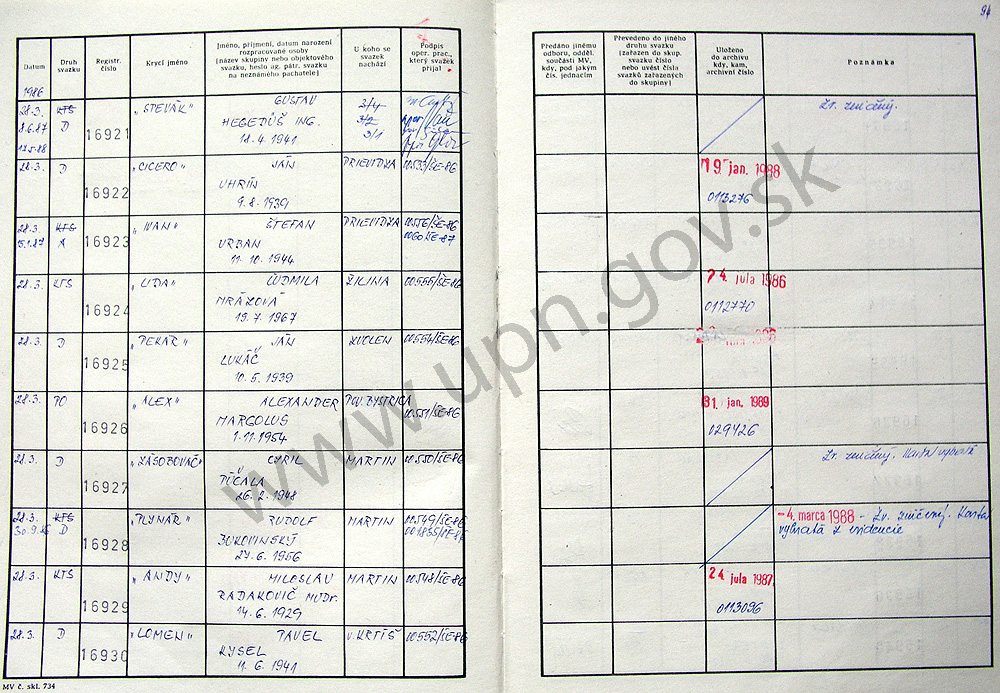 94
Datum
Druh svazku
Registr. číslo
Krycí jméno
Jméno, příjmení, datum narození rozpracované osoby (název skupiny nebo objektového svazku, heslo ag. pátr. svazku na neznámého pachatele)
U koho se svazek nachází
Podpis oper. prac., který svazek přijal
Předáno jinému odboru, odděl. součásti MV, kdy, pod jakým čís. jednacím
Převedeno do jiného druhu svazku (zařazen do skup. svazku číslo nebo uvést čísla svazků zařazených do skupiny)
Uloženo do archivu kdy, kam, archivní číslo
Poznámka
1986
28.3. KTS 16921 "STEVÁK" GUSTAV 3/4
8.6.87 D HEGEDÜŠ ING. 3/2
18.4.1941 3/1
Zv. zničený.
28.3. D 16922 "CICERO" JÁN PRIEVIDZA 00553/ŠE-86
UHRÍN
9.8.1939
19. jan. 1988
0113276
28.3. KTS 16923 "IVAN" ŠTEFAN PRIEVIDZA 00556/ŠE-86
15.1.87 A URBAN
11.10.1944
28.3. KTS 16924 "LIDA" ĽUDMILA ŽILINA 00555/ŠE-86
MRÁZOVÁ
19.7.1967
24. jula 1986
0112770
28.3. D 16925 "PEKÁR" JÁN ZVOLEN 00554/ŠE-86
LUKÁČ
10.5.1939
28.3. PO 16926 "ALEX" ALEXANDER POV. BYSTRICA 00551/ŠE-86
MARGOLUS
1.11.1954
31. jan. 1989
029426
28.3. D 16927 "ZÁSOBOVAČ" CYRIL MARTIN 00550/ŠE-86
PÍČALA
26.2.1948
Zv. zničený. Karta vybratá
28.3. KTS 16928 "PLYNÁR" RUDOLF MARTIN 00549/ŠE-86
30.9.86 D BUKOVINSKÝ
27.6.1956
-4. marca 1988 - Zv. zničený. Karta
vybratá z evidencie
28.3. KTS 16929 "ANDY" MILOSLAV MARTIN 00548/ŠE-86
RADAKOVIČ MUDr.
14.6.1929
24 jula 1987
0113096
28.3. D 16930 "LOMEN" PAVEL V. KRTÍŠ 00552/ŠE-86
KYSEL
11.6.1941
MV č. skl. 734
www.upn.gov.sk